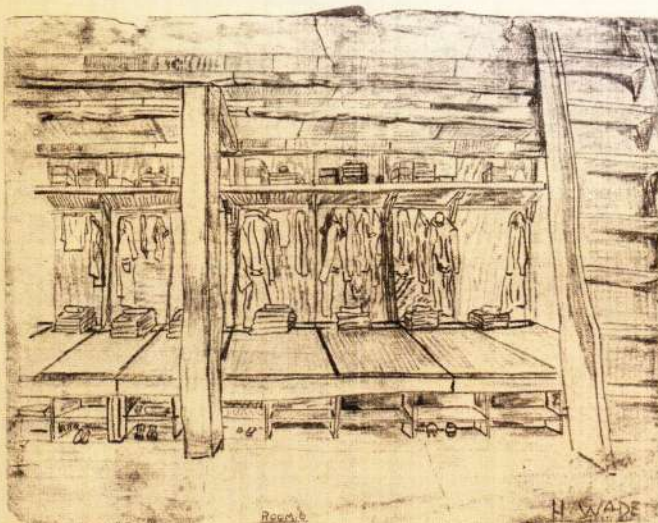 ROOM 6
H WADE